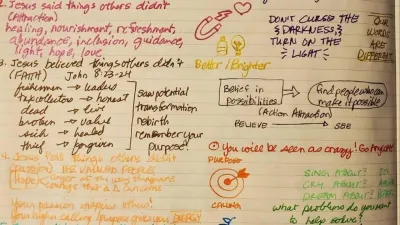 1. Jesus said things others didn't
(Attraction)
healing, nourishment, refreshment,
abundance, inclusion, guidance,
light, hope, love
DON'T CURSE THE
DARKNESS,
TURN ON THE
LIGHT
OUR
WORDS
ARE
DIFFERENT
Better/Brighter
3. Jesus believed things others didn't
(FAITH) John 8:23-24
fishermen → leaders
tax collectors → honest
dead → live
broken → value
sick → healed
thief → forgiven
saw potential
transformation
rebirth
remember your
purpose!
Belief in
possibilities
find people who can
make it possible
(Action Attraction)
BELIEVE → SEE
4. Jesus felt things others didn't
(Passion)
PURPOSE
CALLING
You will be seen as crazy! Go Anyway
SING ABOUT?
CRY ABOUT?
DREAM ABOUT?
what problems do you want
to help solve?
Your passion inspires others!
Your higher calling/purpose gives you ENERGY